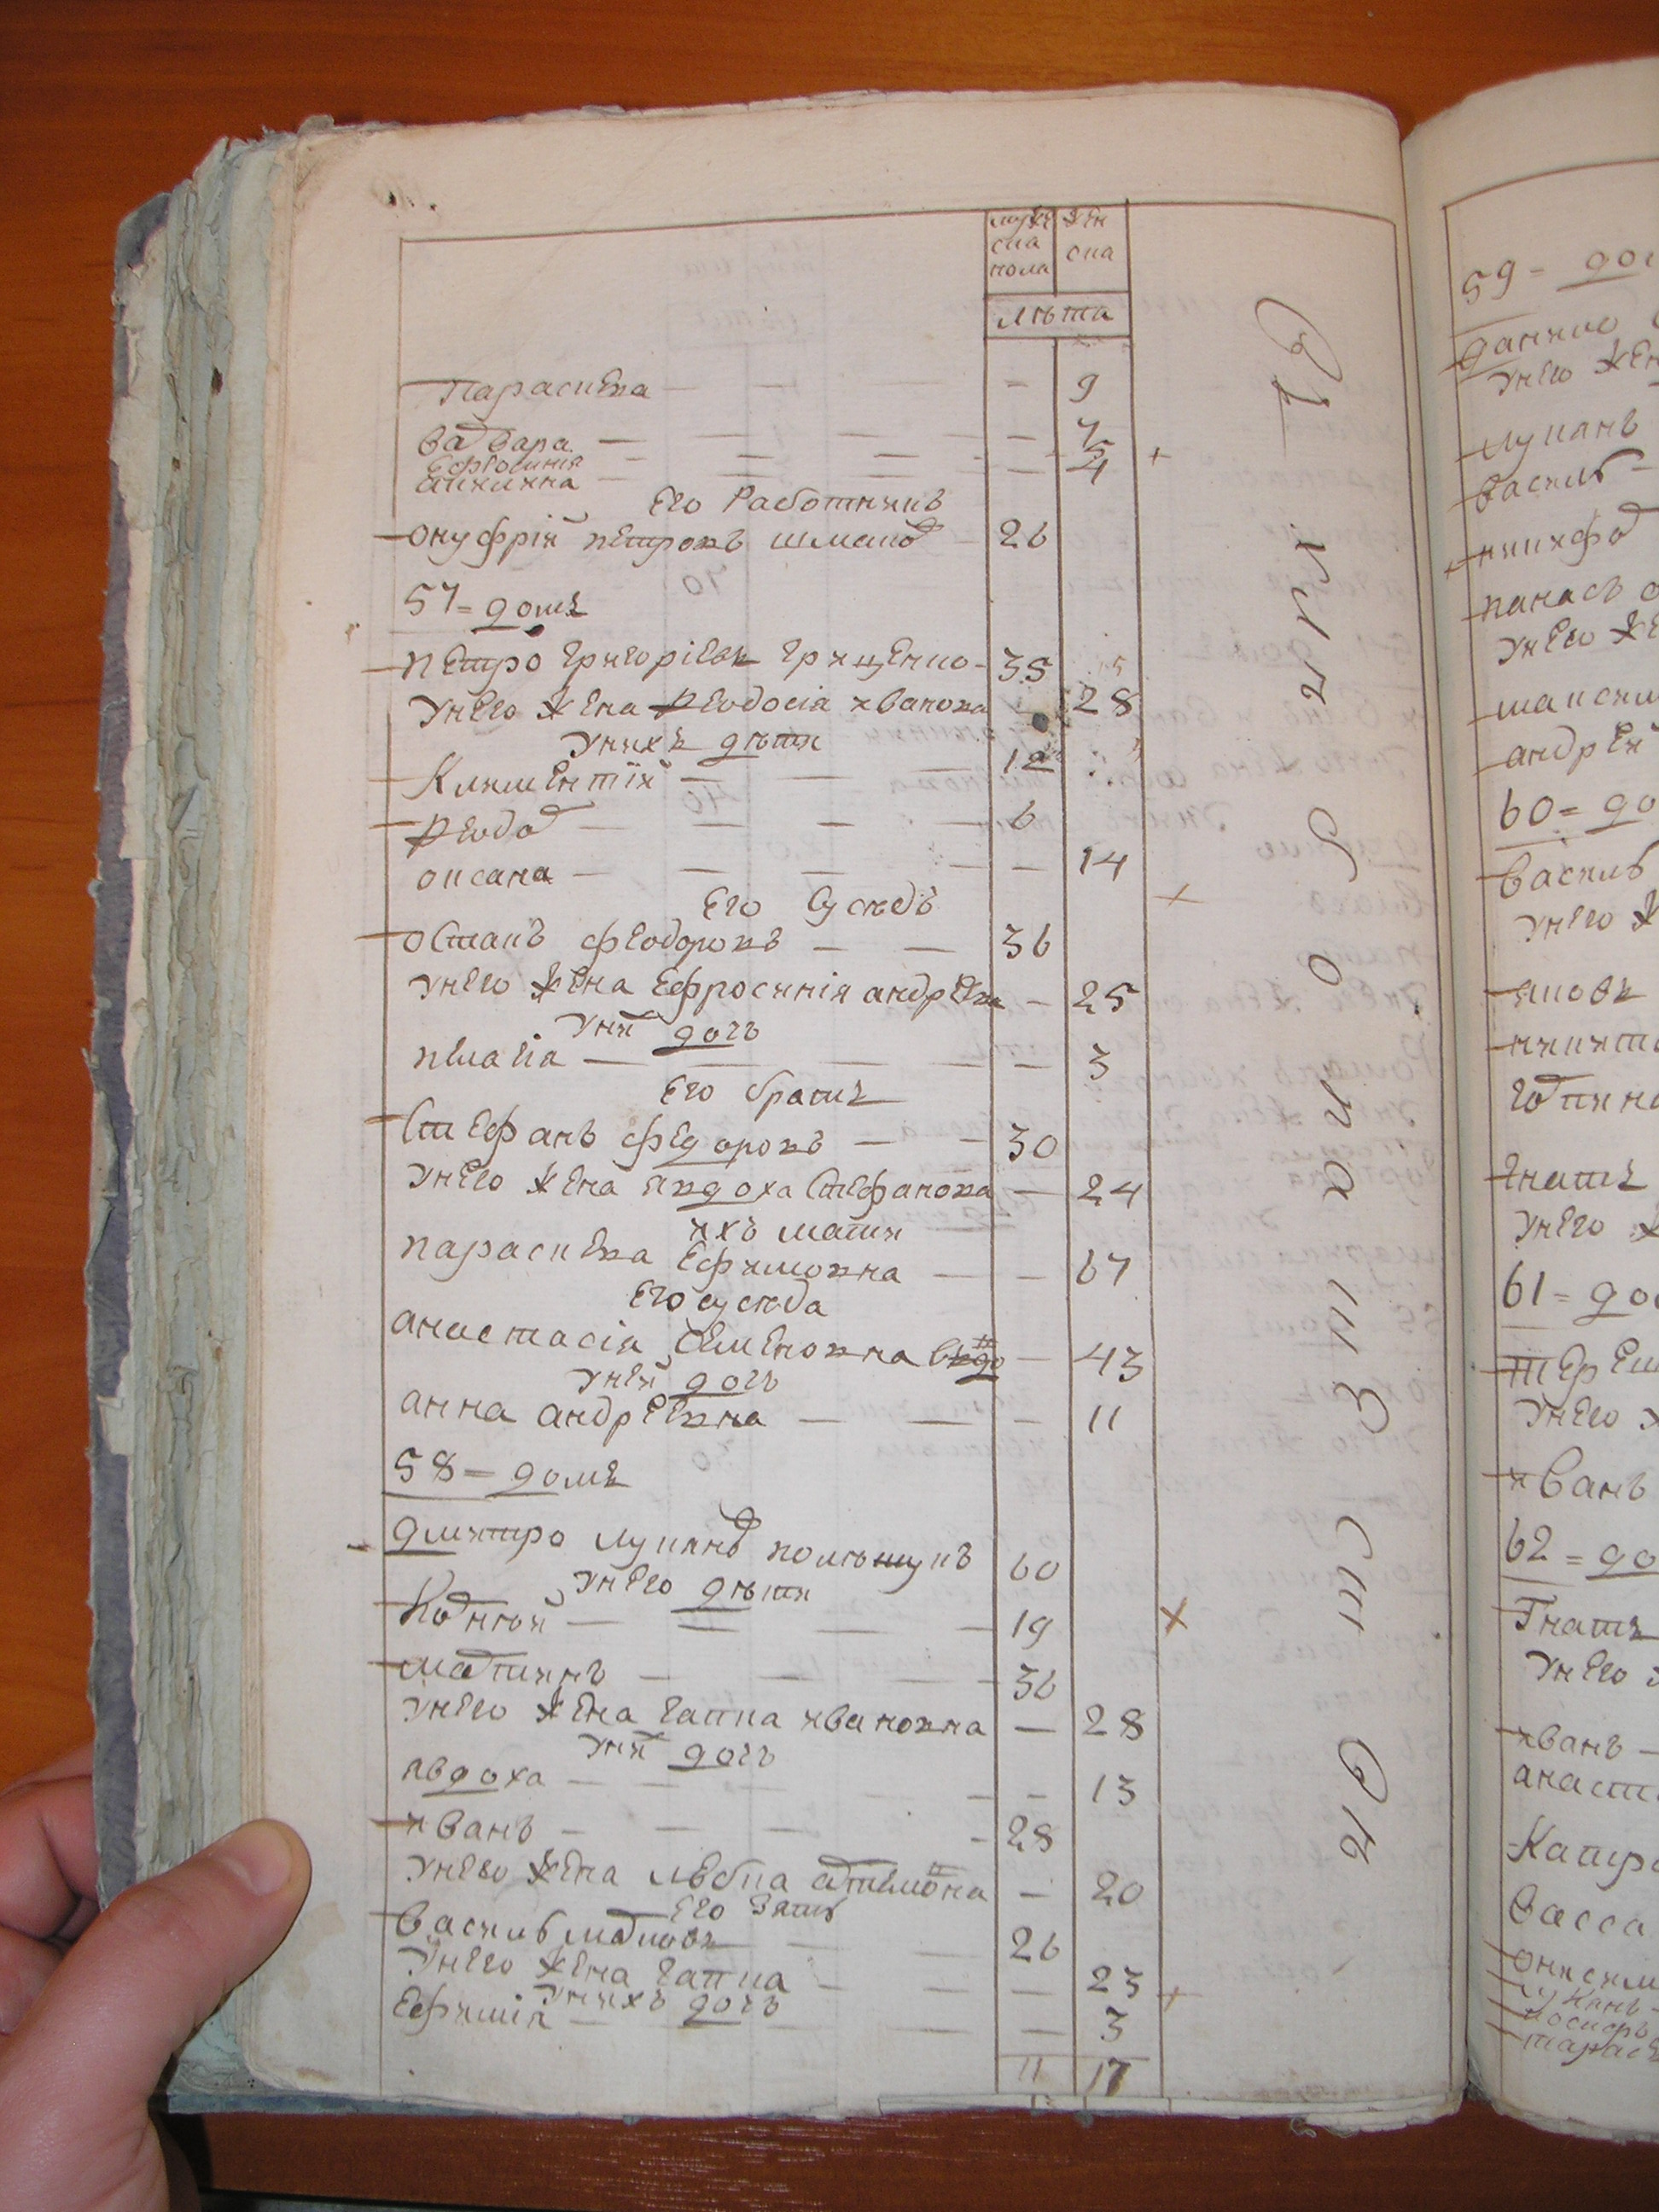 мужеска пола женска
лѣта
Параскева — — — 9
Варвара — — — 7
Ефросинія — — — 5
Акилина — — — 4
Его Работникъ
Онуфрій Петровъ 26
57 = домъ
Петро Григорієвъ Грищенко — 35
У него жена Ѳеодосіа Иванова — 28
У нихъ дѣти
Климентій — — 12
Ѳеодор — — — 6
Оксана — — — 14
Его Сусѣдъ
Остапъ Феодоровъ — — 36
У него жена Ефросинія Андрѣева — 25
У ней дочь
Пелагіа — — — 3
Его братъ
Стефанъ Федоровъ — — 30
У него жена Явдоха Стефанова — 24
Ихъ мати
Параскева Ефимовна — — 67
Его сусѣда
Анастасія Семеновна вдо — 43
У ней дочь
Анна Андрѣевна — — — 11
58 = домъ
Дмитро Лукянов Полѣщукъ 60
У него дѣти
Корнѣй — — — 19
Мартинъ — — — 36
У него жена Гапка Ивановна — 28
У ней дочь
Явдоха — — — 13
Иванъ — — — 28
У него жена Любка — 20
Его Зять
Василь Марковъ — — 26
У него жена Гапка — — — 23
У нихъ дочь
Ефимія — — — 3
11 17
59 = до
Данило
У него жен
Лукянъ
Василь —
Никифор
Панасъ
У него же
Максим
Андрей
60 = до
Василь
У него ж
Яковъ
Никит
Игнатъ
У него ж
61 = до
Тереш
У него ж
Иванъ
62 = до
Гнатъ
У него ж
Иванъ —
Анаст
Васса